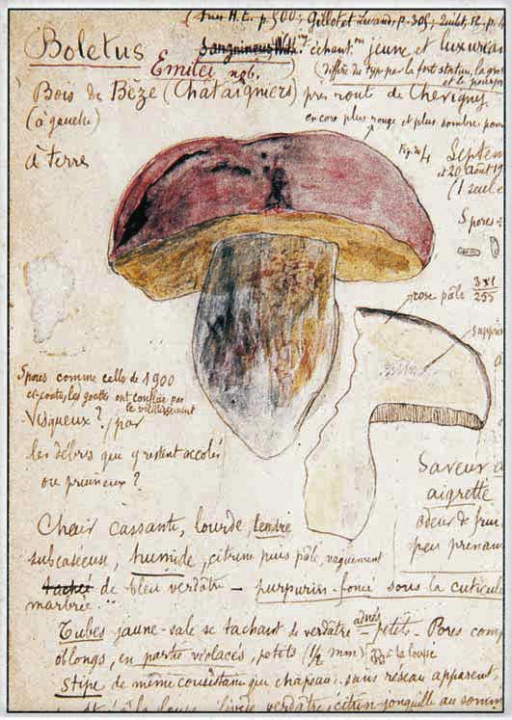 (Ann H.E. p. 500; Gillot et Lucand, p. 305; Quél.,
Boletus échant.on jeune et luxurian
Emilei nob. (diffère du type par la forte stature, la gros
et le pourpre
Bois de Bèze (Chataigniers) près route de Chevigny.
(à gauche) encore plus rouge et plus sombre
à terre
Fig. 4
Septem
et 20 Août 19
(1 seule
Spores:
rose pâle 3x1
255
Spores comme celles de 1900
et toutes les gouttes ont conflué par
le vieillissement
Visqueux? / par
les débris qui y restent accolés
ou pruineux?
Saveur a
aigrette
odeur de frui
peu prenan
Chair cassante, lourde, tendre
subcaséeuse, humide, citrine puis pâle, vaguement
tachée de bleu verdâtre — purpurin-foncé sous la cuticule
marbrée
Tubes jaune-sale se tachant de verdâtre adnés petits. Pores comp
oblongs, en partie violacés, petits (½ mm) à la loupe
Stipe de même consistance que chapeau, sans réseau apparent,
à la loupe livide verdâtre, citrin-jonquille au somm